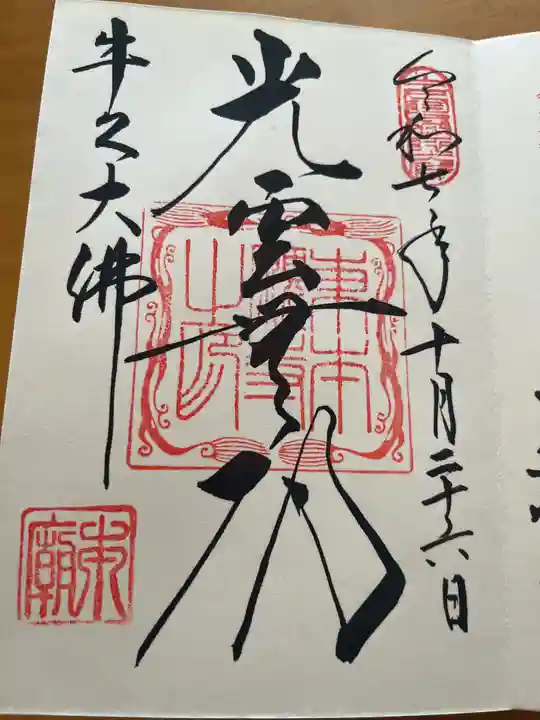 令和七年十月二十六日
光雲無礙
牛久大佛
東本願寺之印
東廟